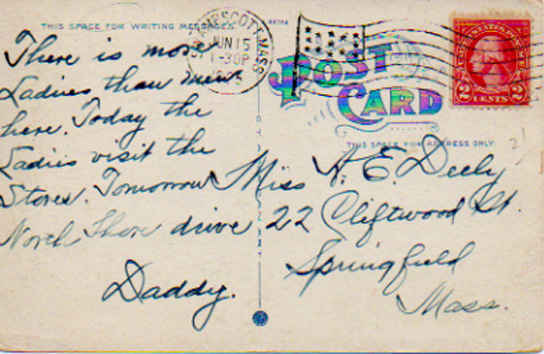 THIS SPACE FOR WRITING MESSAGES
SWAMPSCOTT, MASS.
JUN 15
1-30P
POST
CARD
2 CENTS 2
THIS SPACE FOR ADDRESS ONLY.
There is more
Ladies than men
here. Today the
Ladies visit the
Stores. Tomorrow
North Shore drive
Daddy.
Miss A. E. Deely
22 Cliftwood St.
Springfield
Mass.